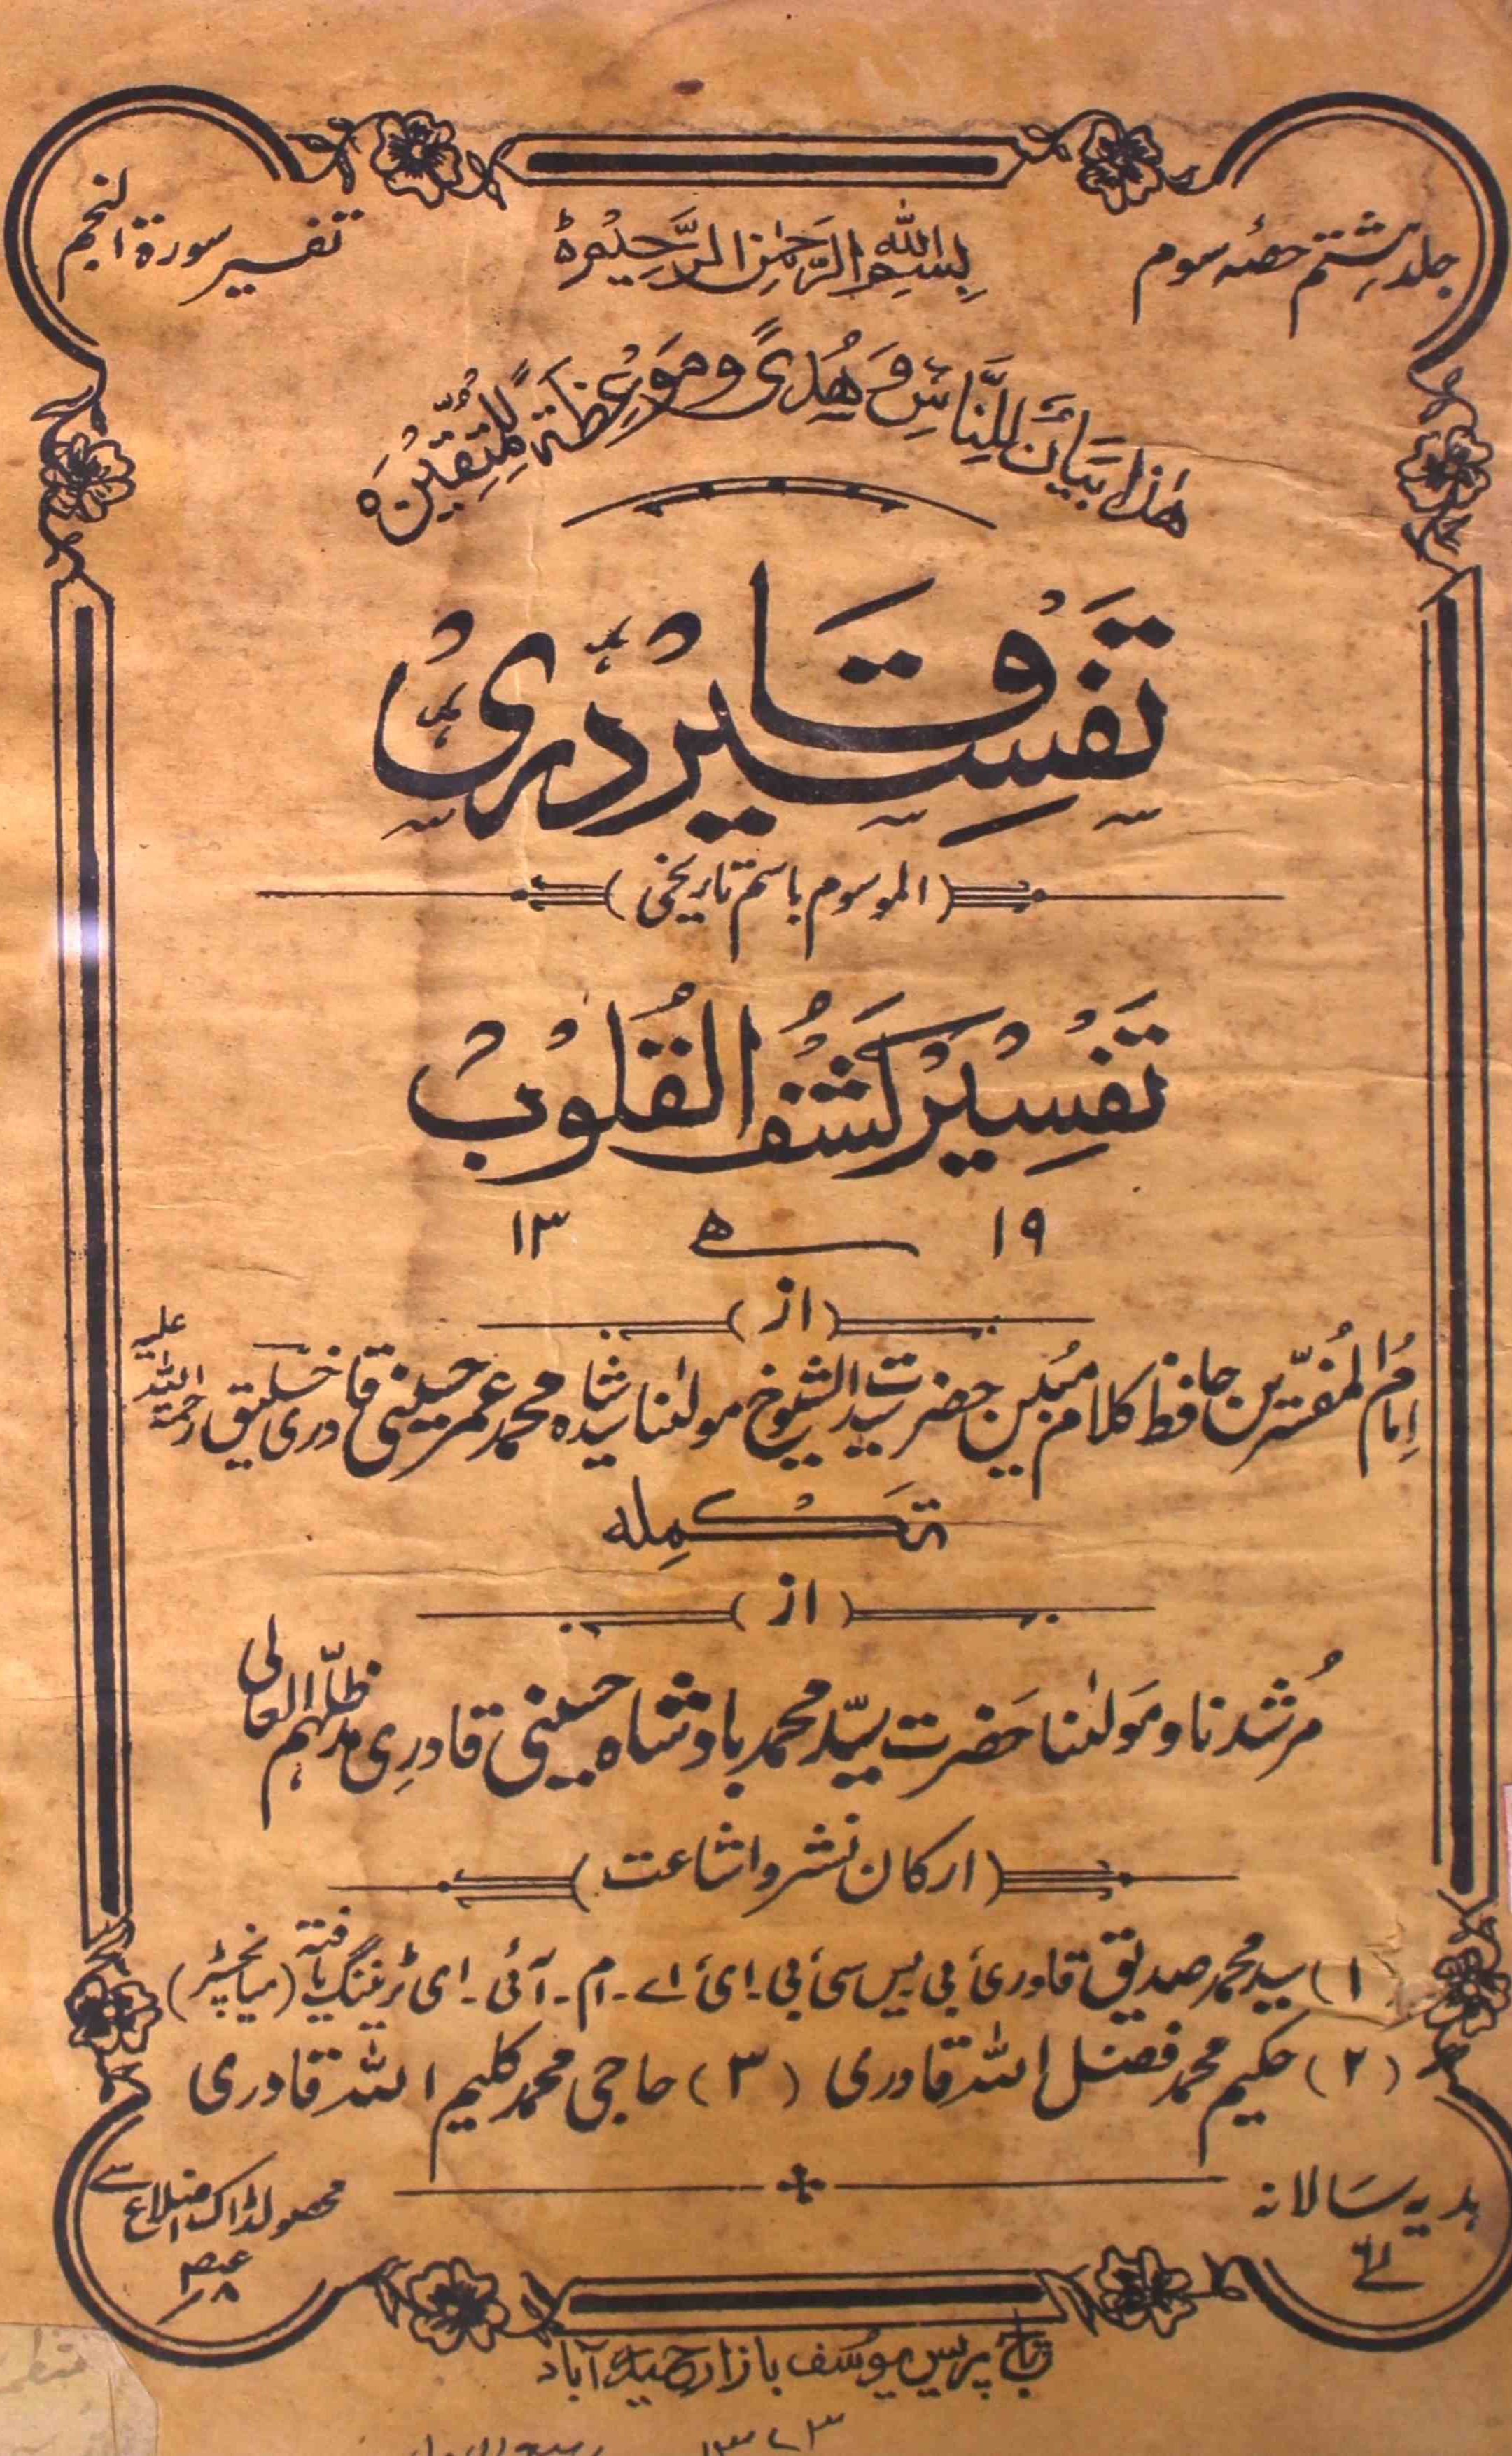 جلد ہشتم حصہٴ سوم
بِسْمِ اللّٰهِ الرَّحْمٰنِ الرَّحِيْمِ ط
تفسیر سورۃ النجم
هٰذَا بَيَانٌ لِّلنَّاسِ وَهُدًى وَمَوْعِظَةٌ لِّلْمُتَّقِيْنَ ه
تَفْسِیْر قَادْرِیْ
(الموسوم باسم تاریخی)
تَفْسِیْر کَشْفُ الْقُلُوْبْ
۱۹ ھ ۱۳
(از)
اِمامُ المُفسّرین حافظ کلام مُبین حضرت سید الشیوخ مولٰنا سید شاہ محمد عمر حسینی قادری خلیق رحمۃ اللہ علیہ
تَکْمِلہ
(از)
مُرشدنا و مَولٰنا حَضرت سیّد محمد بادشاہ حسینی قادرِی مدظلّہم العالی
(ارکان نشر و اشاعت)
(۱) سید محمد صدیق قادری بی یس سی بی۔ ای اے۔ ام۔ آئی۔ ای ٹریننگ یافتہ (میانچیٹر)
(۲) حکیم محمد فضل اللہ قادری (۳) حاجی محمد کلیم اللہ قادری
ہدیہ سَالانہ
محصولڈاک اضلاع سے
تاج پریس یوسف بازار حیدرآباد
۱۳۷۳